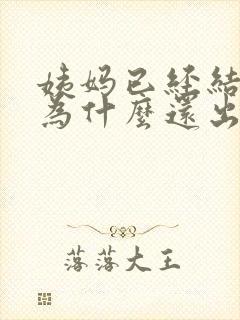 姨妈已经结
為什麼還出
落落大王